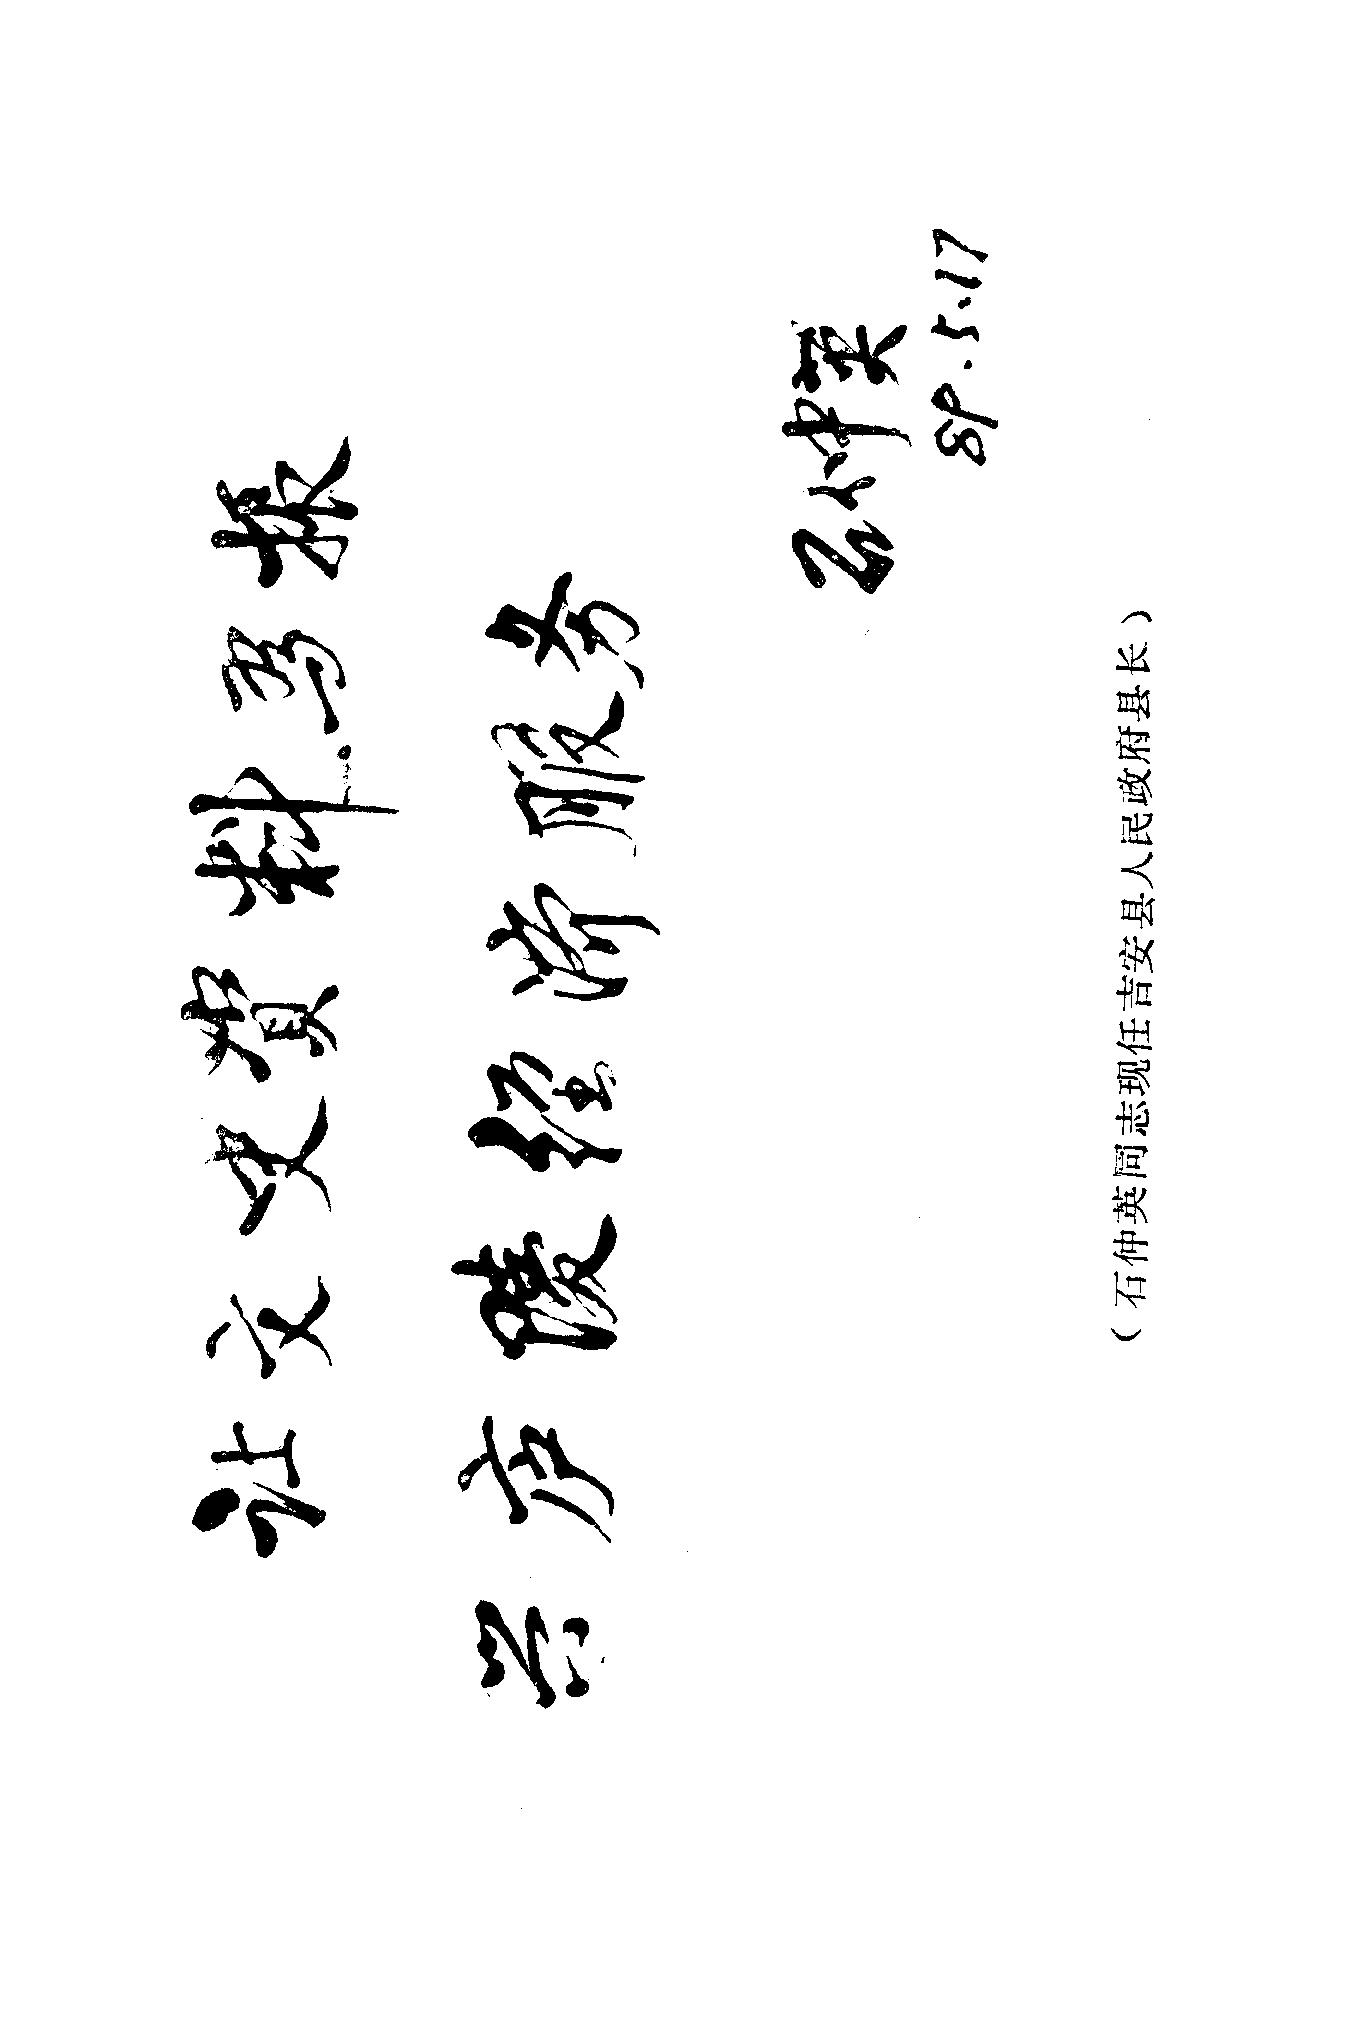 让文史资料为振
兴庐陵经济服务
石仲英
89.5.17
（石仲英同志现任吉安县人民政府县长）